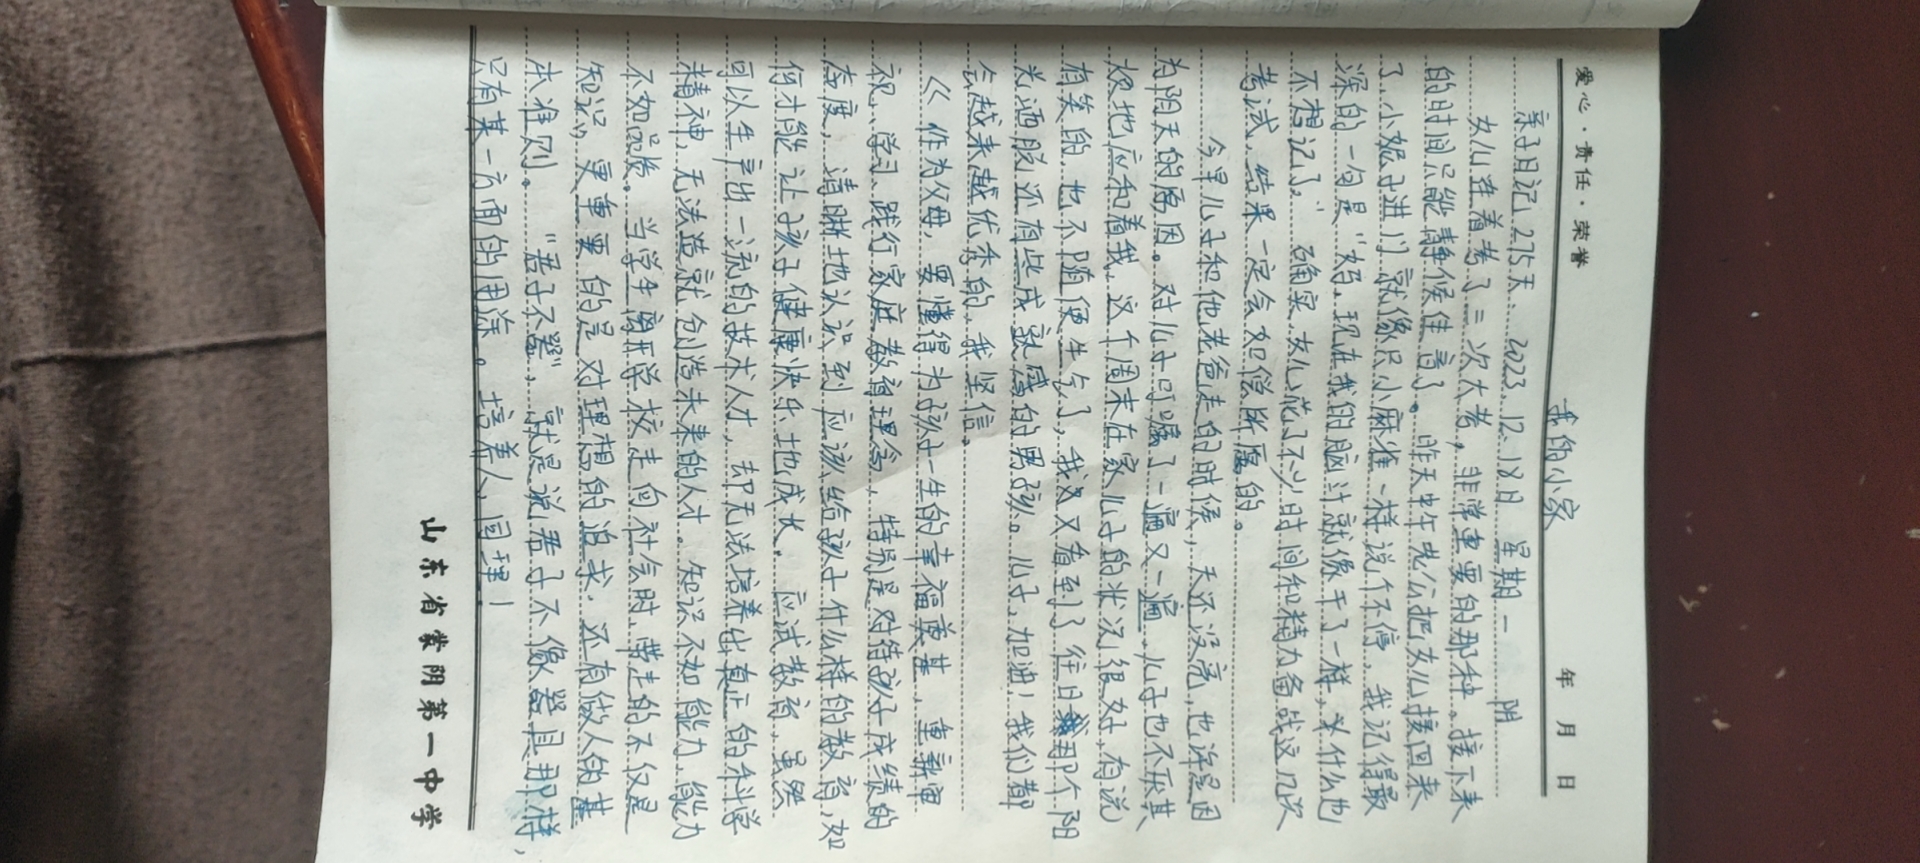 爱心·责任·荣誉
我的小家
年 月 日
亲子日记275天、2023.12.18日 星期一 阴
女儿连着考了三次大考，非常重要的那种。接下来
的时间只能静候佳音了。昨天中午老公把女儿接回来
了，小妮子进门就像只小麻雀一样说个不停，我记得最
深的一句是“妈，现在我的脑汁就像干了一样，半什么也
不想记了。”确实，女儿花了不少时间和精力备战这几次
考试，结果一定会如偿所愿的。
今早儿子和他老爸走的时候，天还没亮，也许是因
为阴天的原因。对儿子叮嘱了一遍又一遍，儿子也不厌其
烦地应和着我，这个周末在家儿子的状况很好，有说
有笑的，也不随便生气了，我又又看到了往日那个阳
光洒脱还有些成就感的男孩。儿子，加油！我们都
会越来越优秀的，我坚信。
《作为父母，要懂得为孩子一生的幸福奠基，重新审
视、学习、践行家庭教育理念，特别是对待孩子成绩的
态度，清晰地认识到应该给孩子什么样的教育，如
何才能让孩子健康快乐地成长。应试教育，虽然
可以生产出一流的技术人才，却无法培养出真正的科学
精神，无法造就创造未来的人才。知识不如能力，能力
不如品质。当学生离开学校走向社会时，带走的不仅是
知识，更重要的是对理想的追求，还有做人的基
本准则。“君子不器”，就是说君子不像器具那样，
只有某一方面的用途。培养人，同理！
山东省蒙阴第一中学